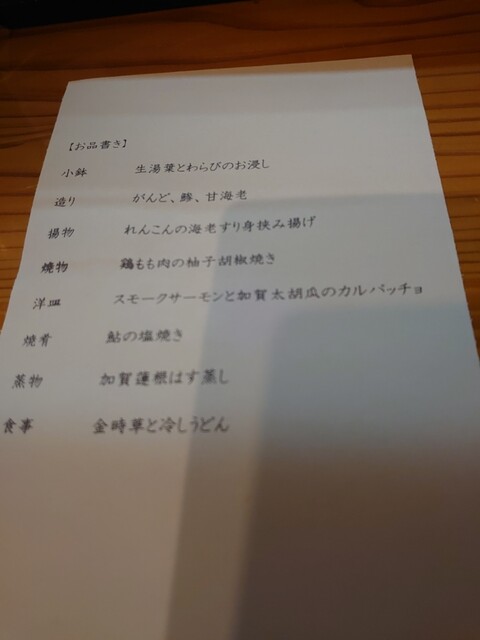 【お品書き】
小鉢 生湯葉とわらびのお浸し
造り がんど、鯵、甘海老
揚物 れんこんの海老すり身挟み揚げ
焼物 鶏もも肉の柚子胡椒焼き
洋皿 スモークサーモンと加賀太胡瓜のカルパッチョ
焼肴 鮎の塩焼き
蒸物 加賀蓮根はす蒸し
食事 金時草と冷しうどん